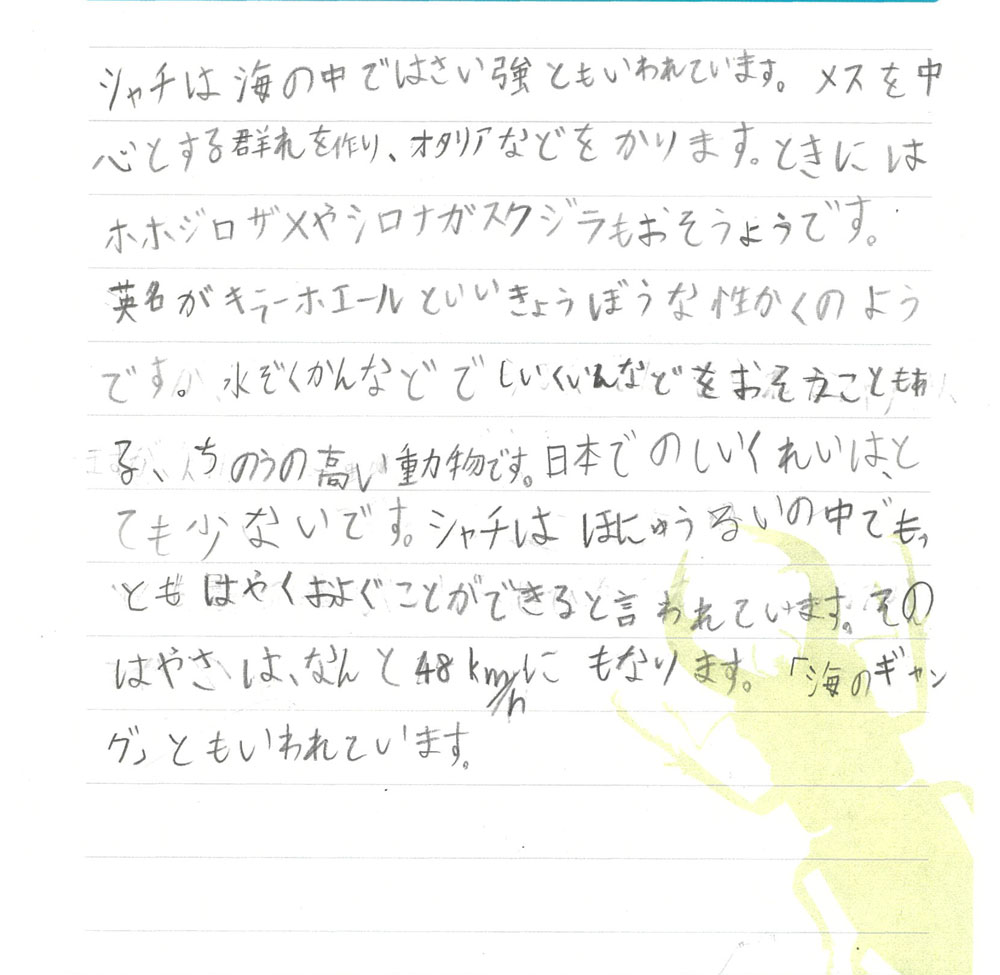 シャチは海の中ではさい強ともいわれています。メスを中
心とする群れを作り、オタリアなどをかります。ときには
ホホジロザメやシロナガスクジラもおそうようです。
英名がキラーホエールといいきょうぼうな性かくのよう
です。水ぞくかんなどでしいくいんなどをおそうこともあ
る、ちのうの高い動物です。日本でのしいくれいは、と
ても少ないです。シャチはほにゅうるいの中でもっ
ともはやくおよぐことができると言われています。その
はやさは、なんと48km/hにもなります。「海のギャン
グ」ともいわれています。